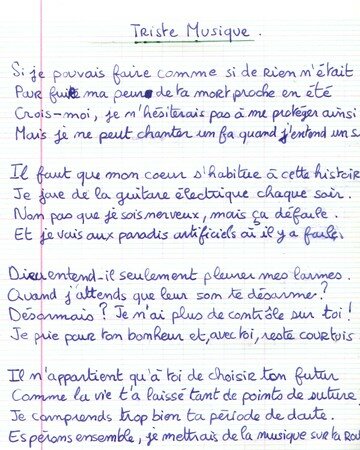 Triste Musique.
Si je pouvais faire comme si de Rien n'était
Pour fuir ma peur de ta mort proche en été
Crois-moi, je n'hésiterais pas à me protéger ainsi
Mais je ne peut chanter un fa quand j'entend un s
Il faut que mon coeur s'habitue à cette histoir
Je joue de la guitare électrique chaque soir.
Non pas que je sois nerveux, mais ça défoule.
Et je vais aux paradis artificiels où il y a
Dieu entend-il seulement pleurer mes larmes.
Quand j'attends que leur son te désarme?
Désarmais? Je n'ai plus de contrôle sur toi!
Je prie pour ton bonheur et, avec toi, reste courtois.
Il n'appartient qu'à toi de choisir ton futur
Comme la vie t'a laissé tant de points de suture
Je comprends trop bien ta période de doute.
Espérons ensemble, je mettrais de la musique sur ta Rou